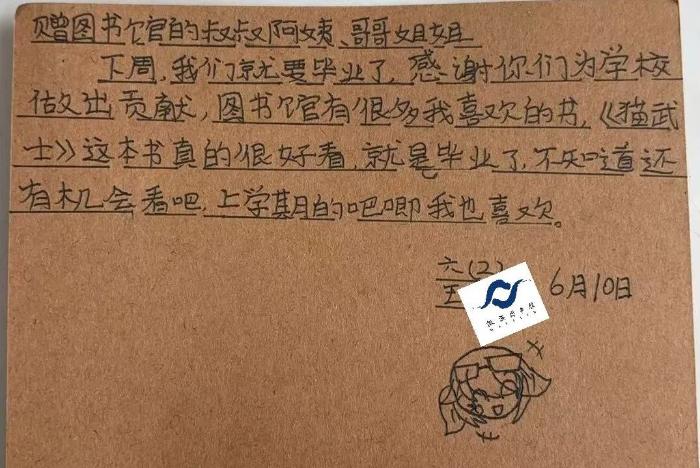 赠图书馆的叔叔阿姨、哥哥姐姐
下周，我们就要毕业了，感谢你们为学校
做出贡献，图书馆有很多我喜欢的书，《猫武
士》这本书真的很好看，就是毕业了，不知道还
有机会看吧，上学期的吧唧我也喜欢。
六(2)
6月10日